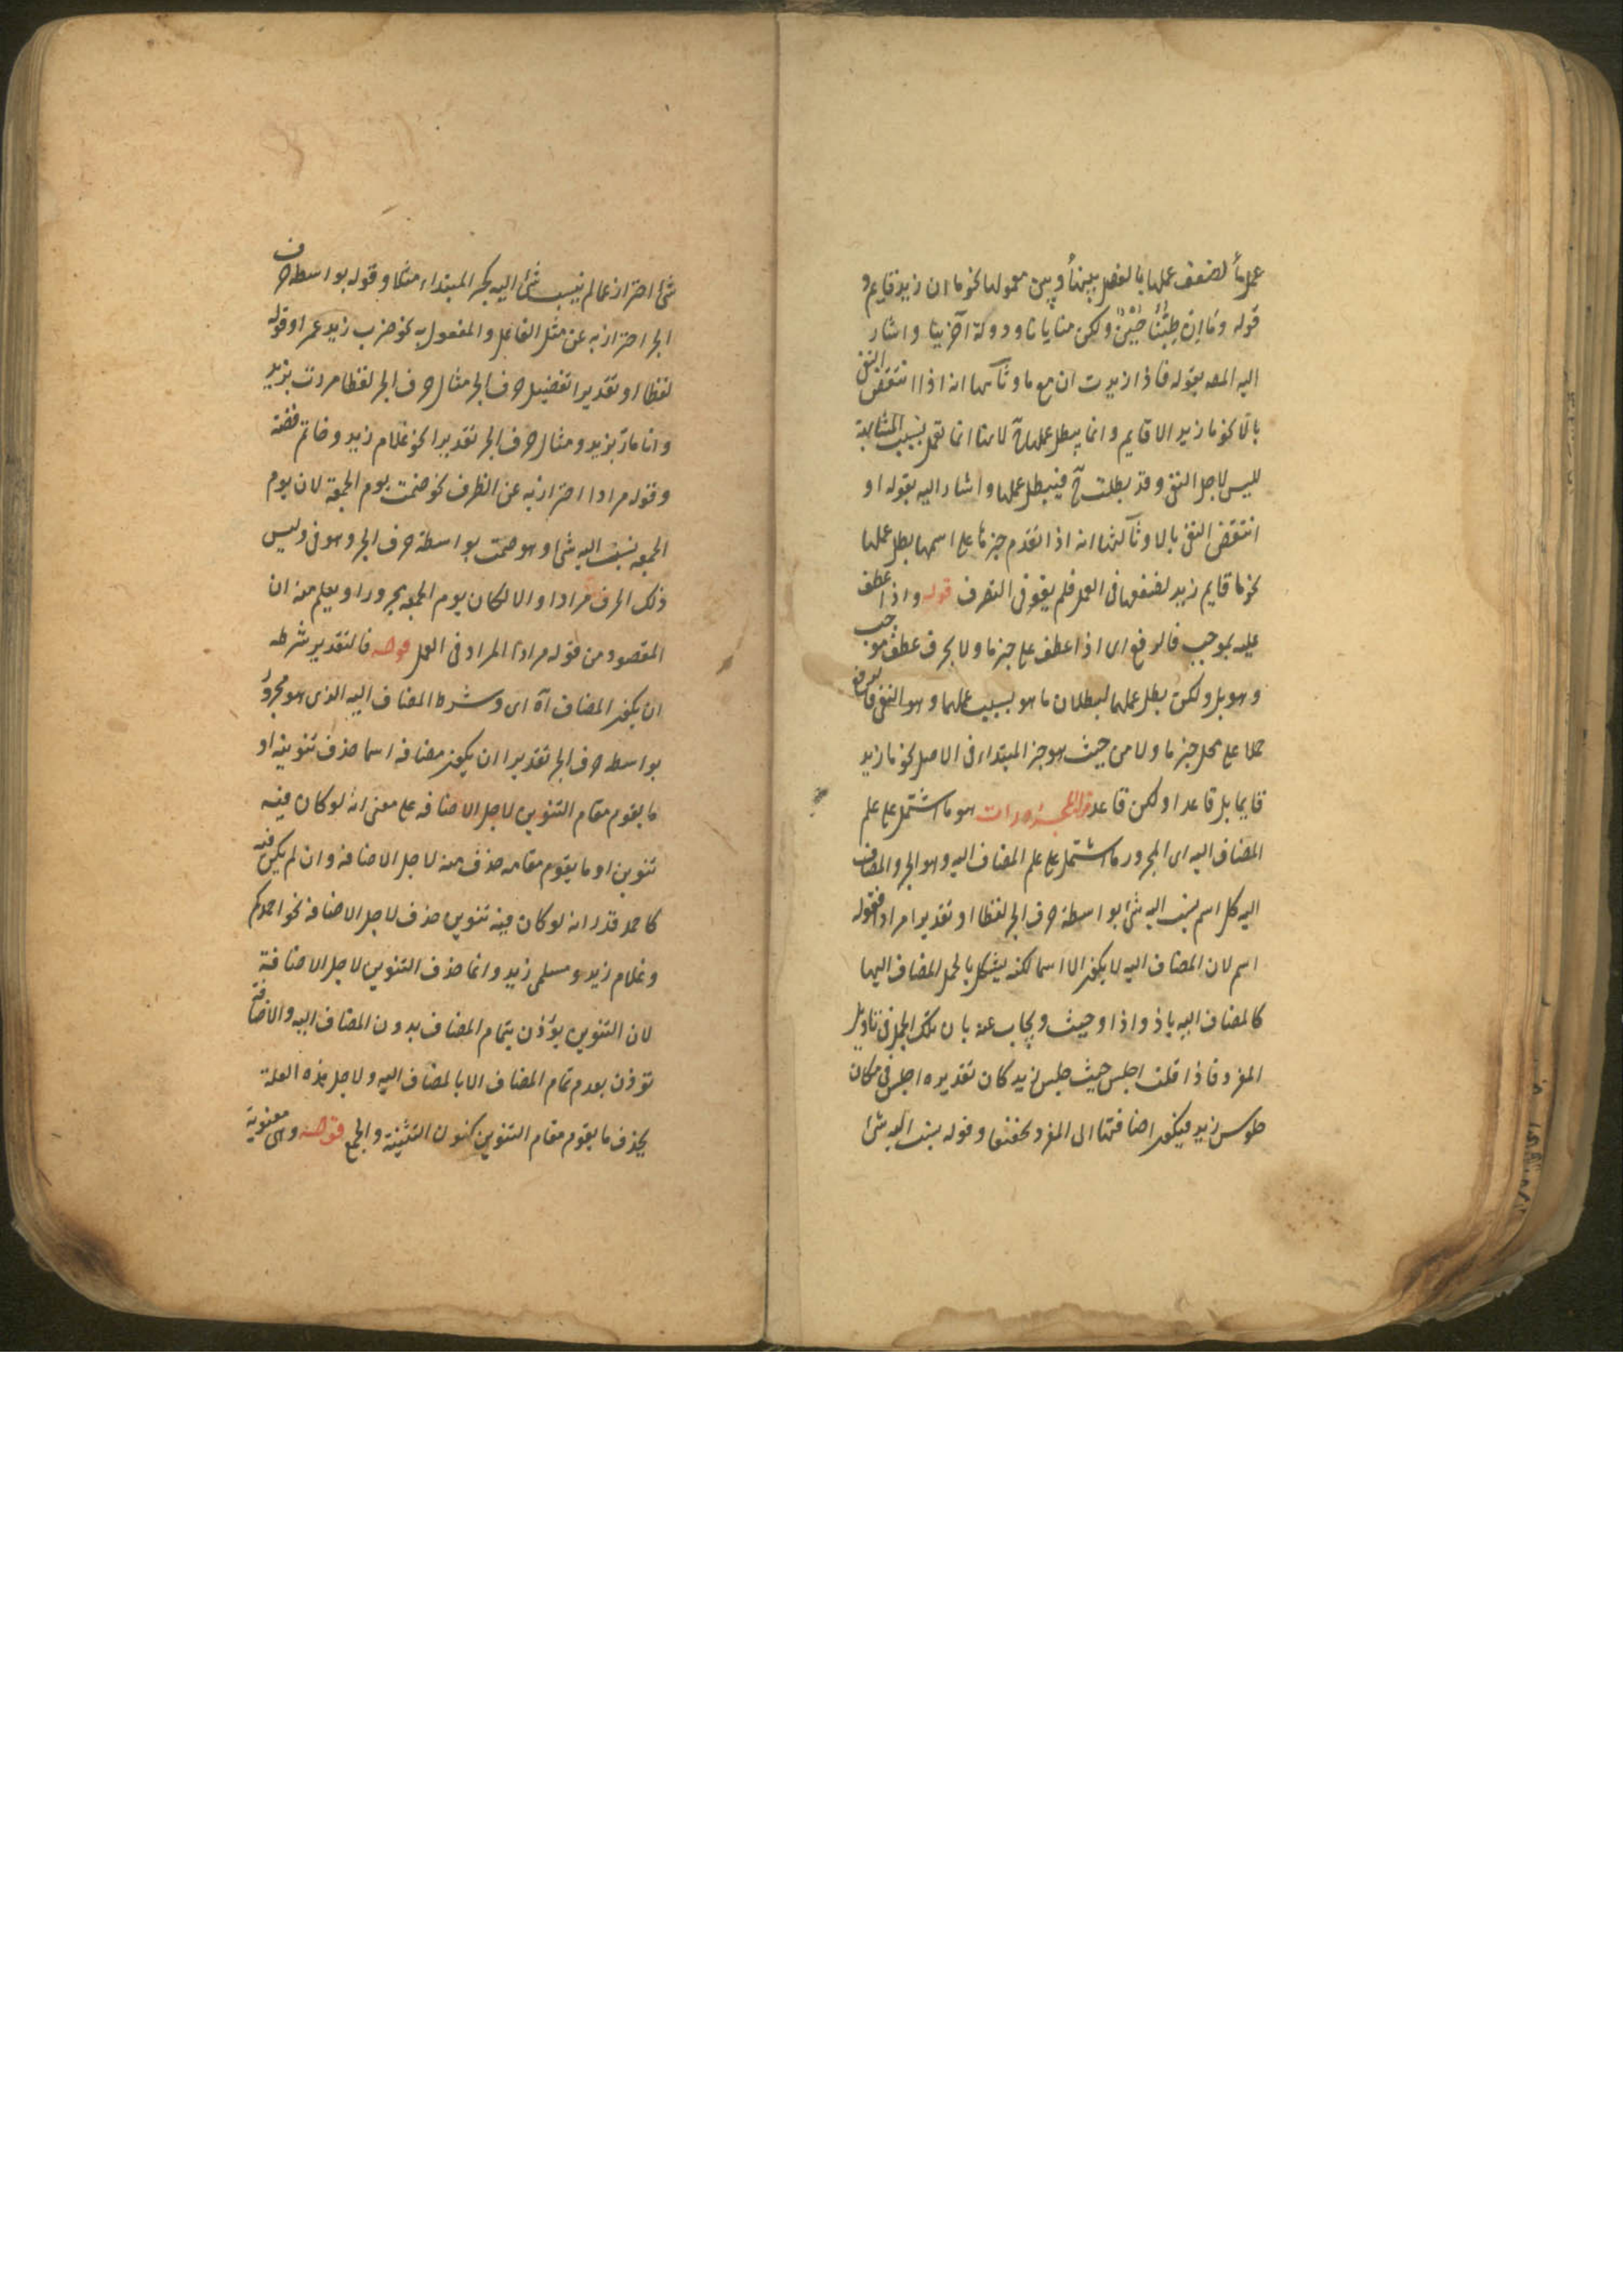 عملها لضعف عملها بالفصل بينها وبين معمولها نحو ما ان زيد قايم و
قوله وما ان طبنا جبن ولكن منايانا ودولة آخرينا واشار
اليه المصه بقوله فاذا زيدت ان مع ما وثانيها انه اذا انتقض النفي
بالا نحو ما زيد الا قايم وانما يبطل عملها ح لانها انما تعمل بسبب المشابهة
لليس لاجل النفي وقد بطلت ح فيبطل عملها واشار اليه بقوله او
انتقض النفي بالا وثالثها انه اذا تقدم خبرها على اسمها بطل عملها
نحو ما قايم زيد لضعفها في العمل فلم يقو في التصرف قوله واذا عطف
عليه بموجب فالرفع اى اذا عطف على خبر ما ولا بحرف عطف موجب
وهو بل ولكن بطل عملهما لبطلان ما هو بسبب عملهما وهو النفي فالرفع
حملا على محل خبر ما ولا من حيث هو خبر المبتداء في الاصل نحو ما زيد
قايما بل قاعد او لكن قاعد قوله المجرورات هو ما اشتمل على علم
المضاف اليه اى المجرور ما اشتمل على علم المضاف اليه وهو الجر والمضاف
اليه كل اسم نسب اليه شئ بواسطة حرف الجر لفظا او تقديرا مرادا فقوله
اسم لان المضاف اليه لا يكون الا اسما لكنه يشكل بالجمل المضاف اليها
كالمضاف اليه باذ واذا وحيث ويجاب عنه بان تلك الجمل في تاويل
المفرد فاذا قلت اجلس حيث جلس زيد كان تقديره اجلس في مكان
جلوس زيد فيكون اضافتها الى المفرد وقوله نسب اليه شئ
شئ احتراز عما لم ينسب شئ اليه كخبر المبتداء مثلا وقوله بواسطه حرف
الجر احتراز به عن مثل الفاعل والمفعول به نحو ضرب زيد عمرا وقوله
لفظا او تقديرا تفصيل حرف الجر مثال حرف الجر لفظا مررت بزيد
وانا مار بزيد ومثال حرف الجر تقديرا نحو غلام زيد وخاتم فضة
وقوله مرادا احتراز به عن الظرف نحو صمت يوم الجمعة لان يوم
الجمعه نسب اليه شئ وهو صمت بواسطة حرف الجر وهو في وليس
ذلك الحرف مرادا والا لكان يوم الجمعه مجرورا ويعلم منه ان
المقصود من قوله مرادا المراد في العمل قوله فالتقدير شرطه
ان يكون المضاف آه اى وشرط المضاف اليه الذى هو مجرور
بواسطه حرف الجر تقديرا ان يكون مضافه اسما حذف تنوينه او
ما يقوم مقام التنوين لاجل الاضافه على معنى انه لو كان فيه
تنوين او ما يقوم مقامه حذف منه لاجل الاضافة وان لم يكن فيه
كاحمد قدر انه لو كان فيه تنوين حذف لاجل الاضافة نحو احمدكم
وغلام زيد ومسلمى زيد وانما حذف التنوين لاجل الاضافة
لان التنوين يؤذن بتمام المضاف بدون المضاف اليه والاضافة
تؤذن بعدم تمام المضاف الا بالمضاف اليه ولاجل هذه العلة
يحذف ما يقوم مقام التنوين كنون التثنية والجمع قوله وهى معنوية